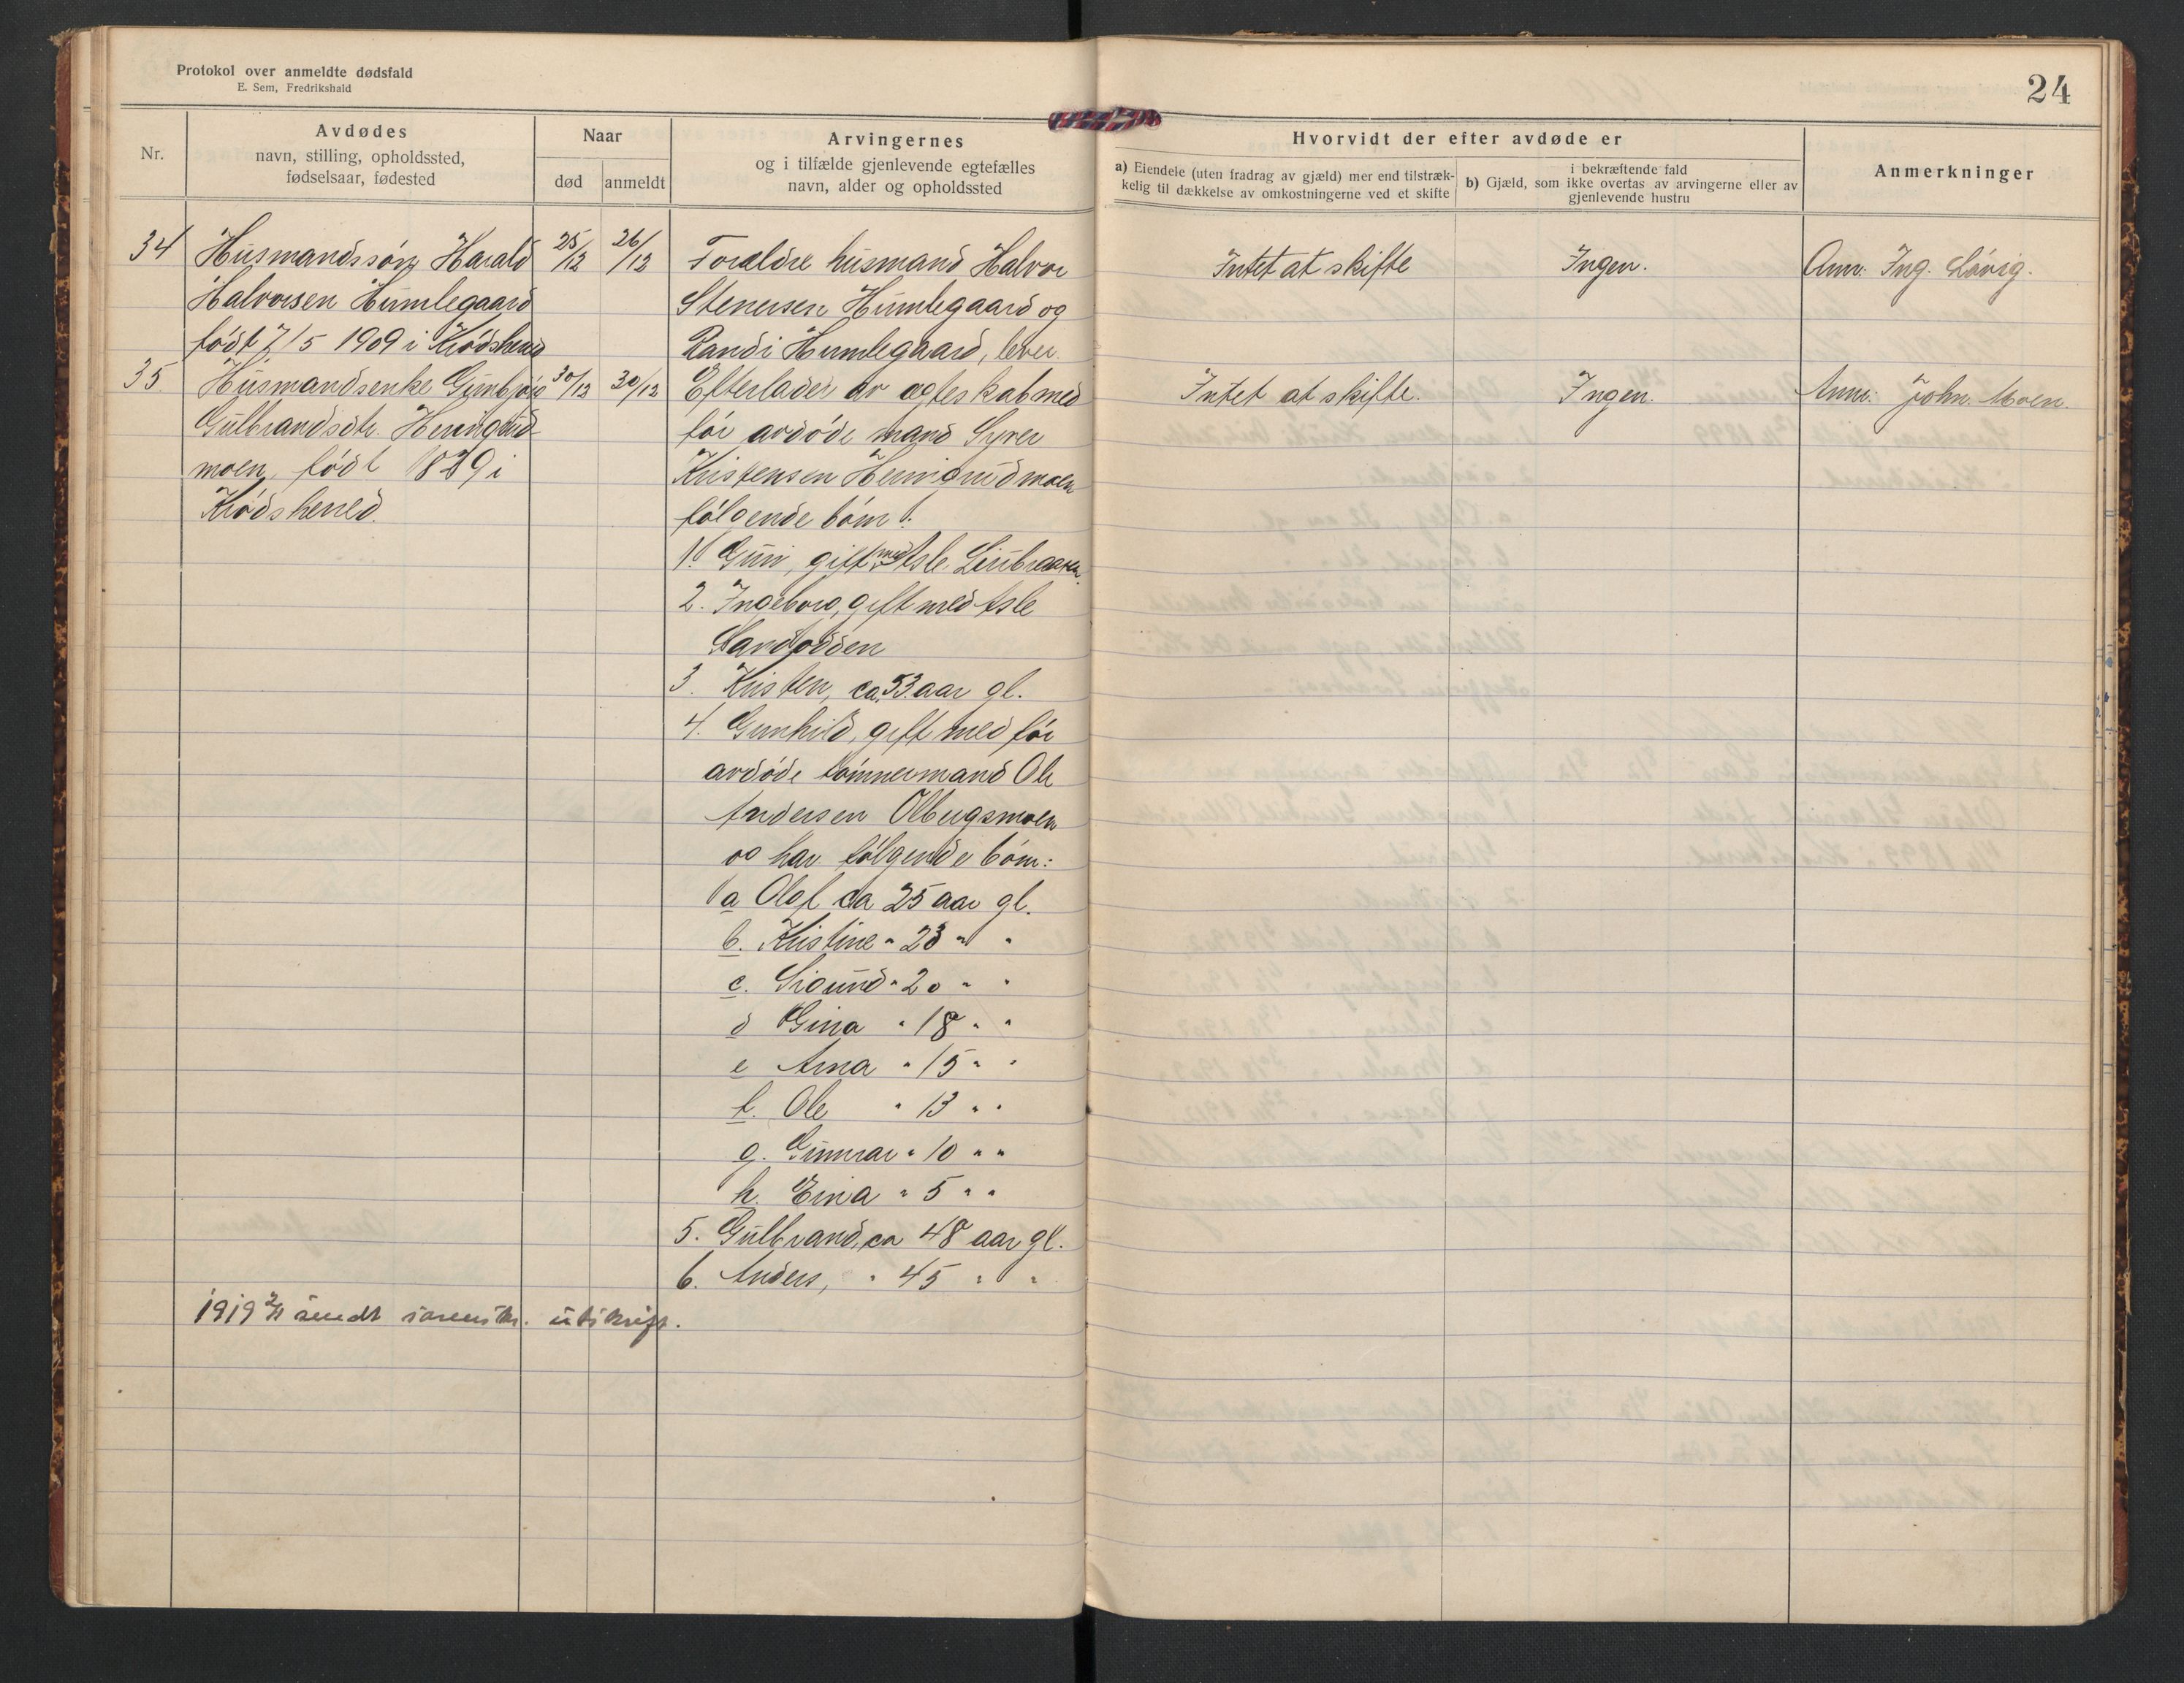 Protokol over anmeldte dødsfald
E. Sem, Fredrikshald
24
Nr.
Avdødes
navn, stilling, opholdssted,
fødselsaar, fødested
Naar
død
anmeldt
Arvingernes
og i tilfælde gjenlevende egtefælles
navn, alder og opholdssted
Hvorvidt der efter avdøde er
a) Eiendele (uten fradrag av gjæld) mer end tilstræk-
kelig til dækkelse av omkostningerne ved et skifte
i bekræftende fald
b) Gjæld, som ikke overtas av arvingerne eller av
gjenlevende hustru
Anmerkninger
34
Husmandssøn Harald
Halvorsen Humlegaard
født 7/5 1909 i Krødsherred
25/12
26/12
Forældre husmand Halvor
Stenersen Humlegaard og
Randi Humlegaard, lever.
Intet at skifte
Ingen.
Anm: Ing. Løvig.
35
Husmandsenke Gunbjør
Gulbrandsdtr. Henrigud-
moen, født 1829 i
Krødsherred.
30/12
30/12
Efterlader av ægteskab med
før avdøde mand Syver
Kristensen Henrigudmoen
følgende børn:
1. Guri, gift med Asle Liubraaten.
2. Ingeborg, gift med Asle
Sandodden
3. Kristen, ca. 53 aar gl.
4. Gunhild, gift med før
avdøde tømmermand Ole
Andersen Olbergsmoen
og har følgende børn:
a Olaf ca 25 aar gl.
b. Kristine " 23 " "
c. Sigurd " 20 " "
d Gina " 18 " "
e Anna " 15 " "
f. Ole " 13 " "
g. Gunnar " 10 " "
h. Eina " 5 " "
5. Gulbrand, ca 48 aar gl.
6. Anders, " 45 " "
Intet at skifte.
Ingen.
Anm: John Moen.
1919 2/1 sendt sorenskr. utskrift.